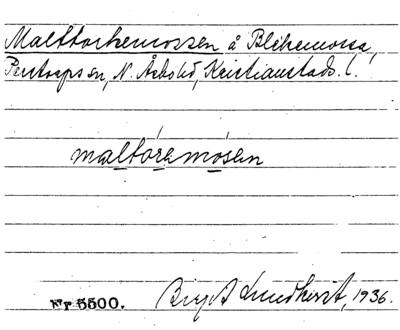 Malttorkemossen å Blekemossa,
Perstorps sn, N. Åsbo hd, Kristianstads l.
maltóremósen
Nr 5500.
Birgit Lundkvist, 1936.